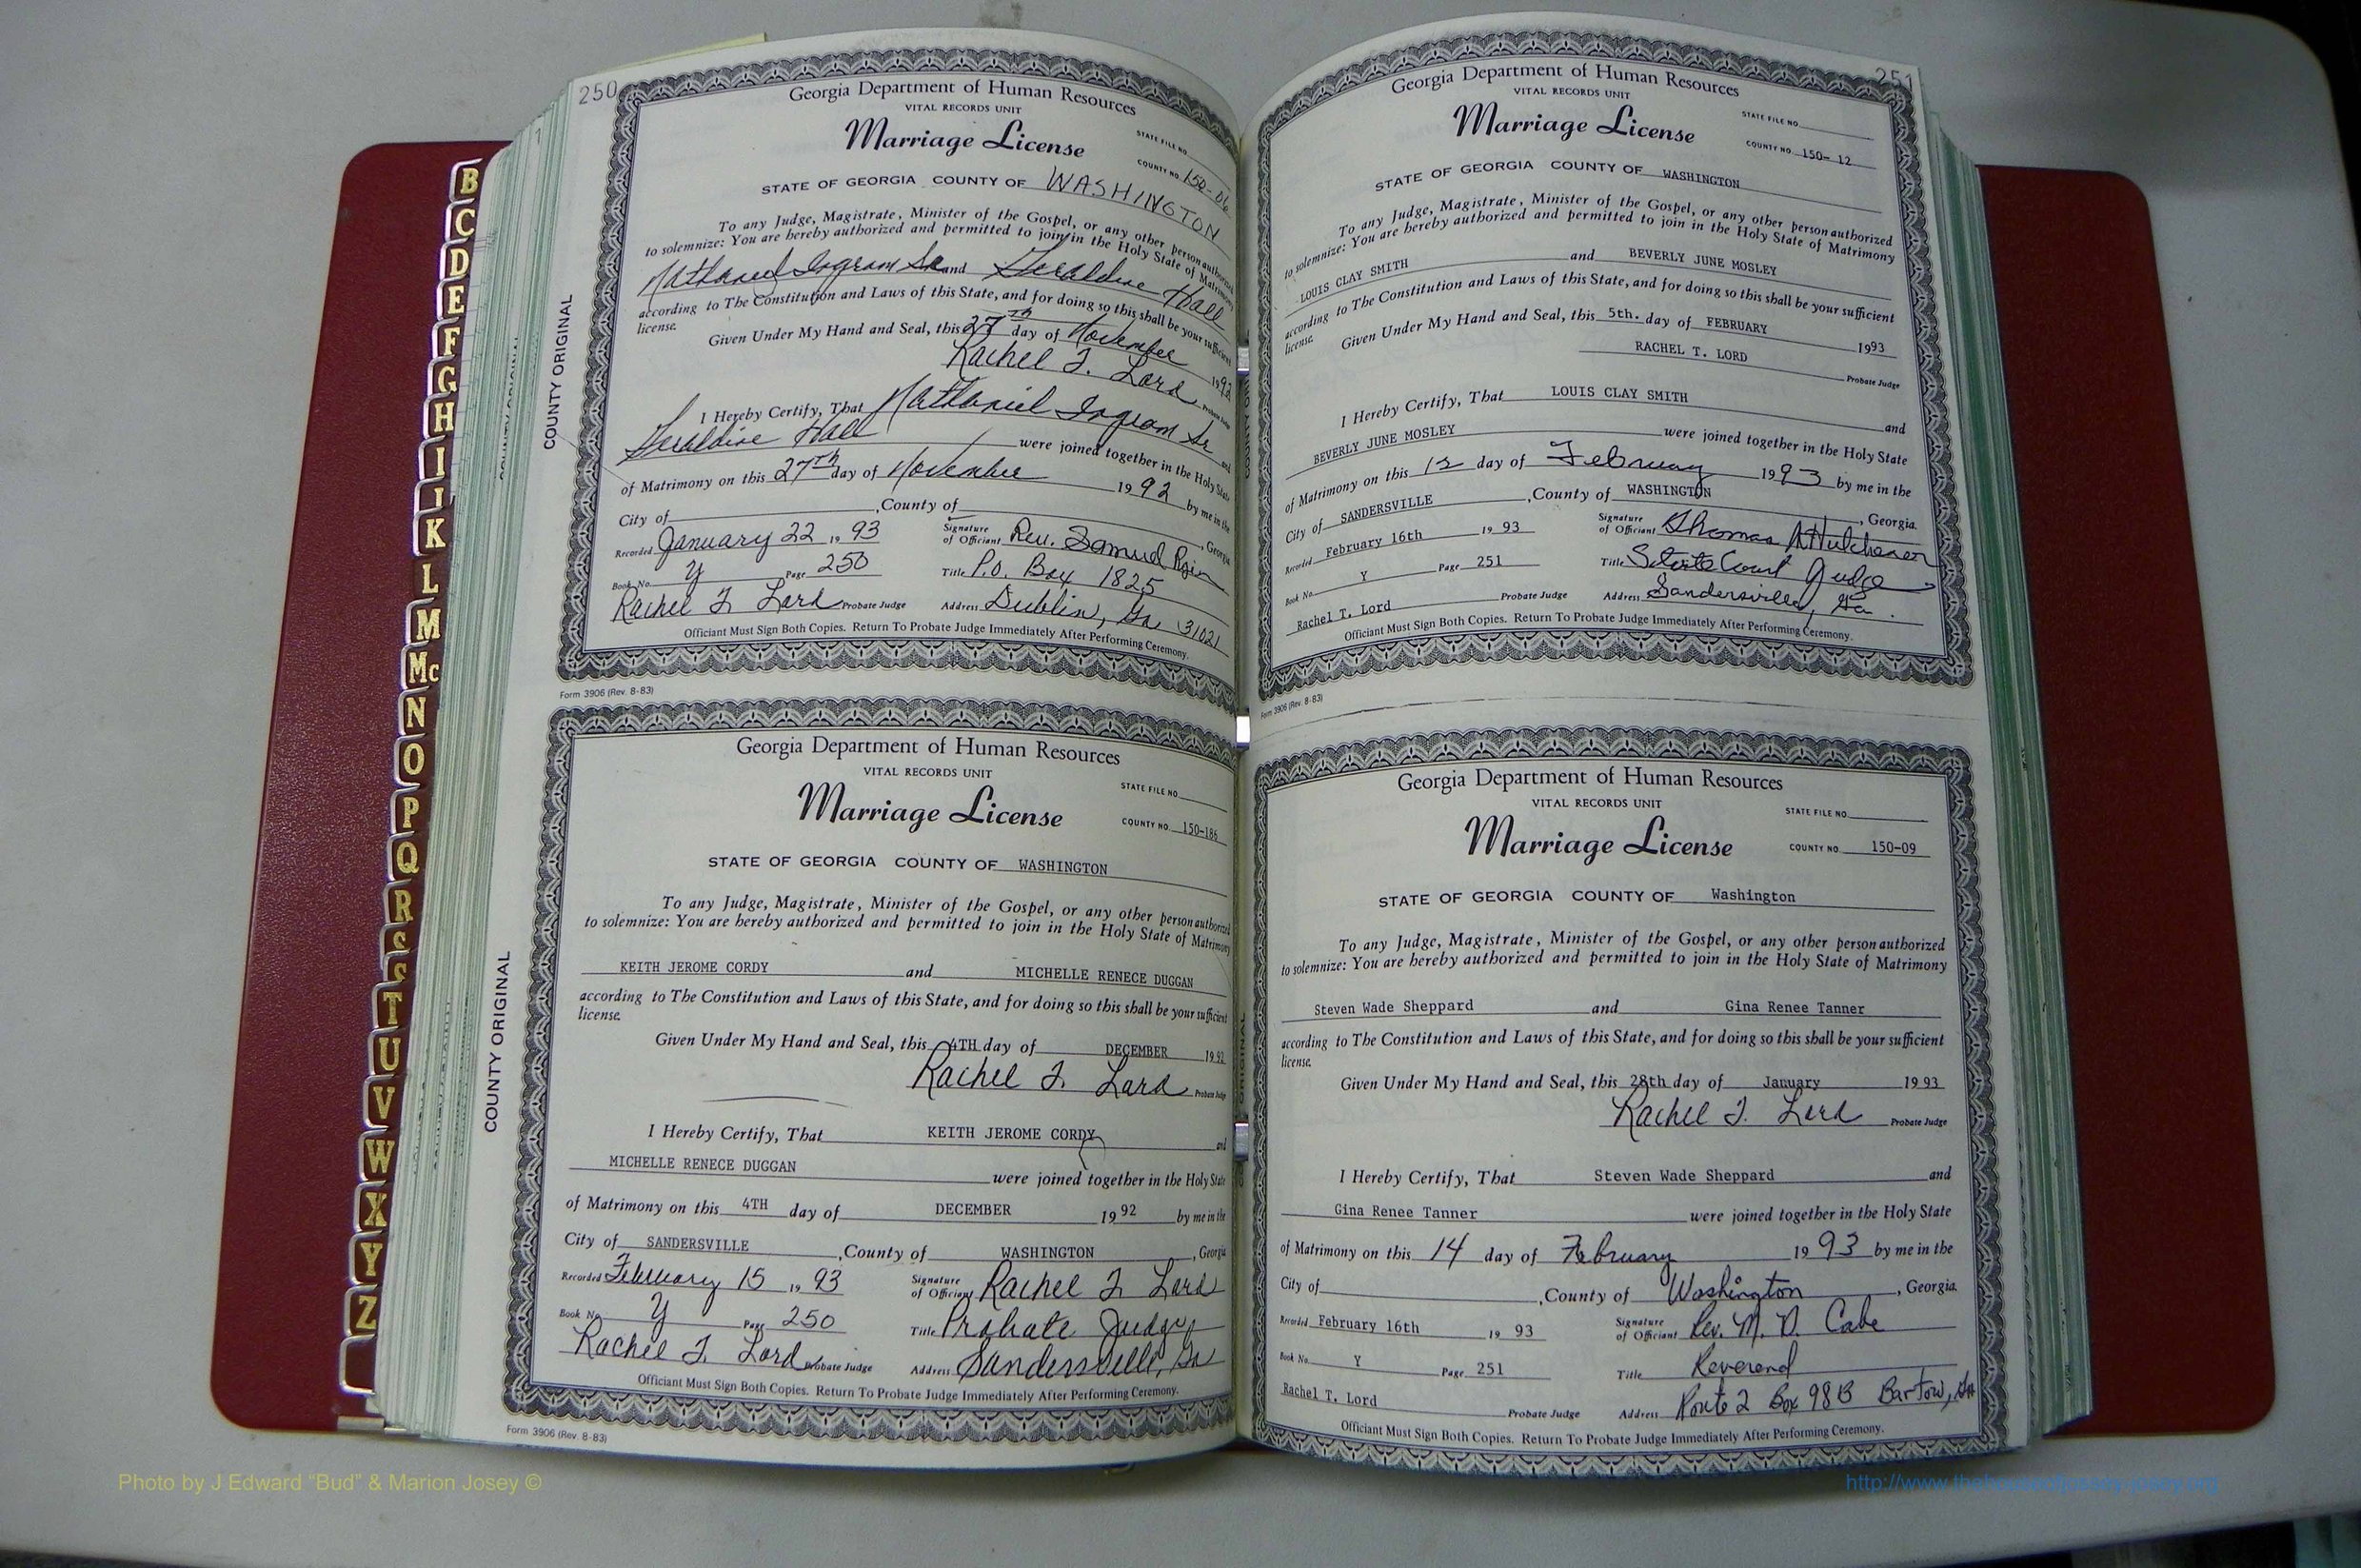 B
C
D
E
F
G
H
I
J
K
L
M
Mc
N
O
P
Q
R
S
S
T
U
V
W
X
Y
Z
250
COUNTY ORIGINAL
Georgia Department of Human Resources
VITAL RECORDS UNIT
Marriage License
STATE FILE NO.
COUNTY NO. 150-06
STATE OF GEORGIA COUNTY OF WASHINGTON
To any Judge, Magistrate, Minister of the Gospel, or any other person authorized
to solemnize: You are hereby authorized and permitted to join in the Holy State of Matrimony
Nathaniel Ingram Sr. and Geraldine Hall
according to The Constitution and Laws of this State, and for doing so this shall be your sufficient
license.
Given Under My Hand and Seal, this 27th day of November 1992
Rachel T. Lord Probate Judge
I Hereby Certify, That Nathaniel Ingram Sr and
Geraldine Hall were joined together in the Holy State
of Matrimony on this 27th day of November 1992 by me in the
City of , County of , Georgia
Recorded January 22 19 93
Signature of Officiant Rev. Samuel
Book No. Y Page 250
Title P.O. Box 1825
Rachel T. Lord Probate Judge
Address Dublin, Ga 31021
Officiant Must Sign Both Copies. Return To Probate Judge Immediately After Performing Ceremony.
Form 3906 (Rev. 8-83)
COUNTY ORIGINAL
Georgia Department of Human Resources
VITAL RECORDS UNIT
Marriage License
STATE FILE NO.
COUNTY NO. 150-186
STATE OF GEORGIA COUNTY OF WASHINGTON
To any Judge, Magistrate, Minister of the Gospel, or any other person authorized
to solemnize: You are hereby authorized and permitted to join in the Holy State of Matrimony
KEITH JEROME CORDY and MICHELLE RENECE DUGGAN
according to The Constitution and Laws of this State, and for doing so this shall be your sufficient
license.
Given Under My Hand and Seal, this 4TH day of DECEMBER 1992
Rachel T. Lord Probate Judge
I Hereby Certify, That KEITH JEROME CORDY and
MICHELLE RENECE DUGGAN were joined together in the Holy State
of Matrimony on this 4TH day of DECEMBER 1992 by me in the
City of SANDERSVILLE , County of WASHINGTON , Georgia
Recorded February 15 19 93
Signature of Officiant Rachel T. Lord
Book No. Y Page 250
Title Probate Judge
Rachel T. Lord Probate Judge
Address Sandersville, Ga
Officiant Must Sign Both Copies. Return To Probate Judge Immediately After Performing Ceremony.
Form 3906 (Rev. 8-83)
251
Georgia Department of Human Resources
VITAL RECORDS UNIT
Marriage License
STATE FILE NO.
COUNTY NO. 150- 12
STATE OF GEORGIA COUNTY OF WASHINGTON
To any Judge, Magistrate, Minister of the Gospel, or any other person authorized
to solemnize: You are hereby authorized and permitted to join in the Holy State of Matrimony
LOUIS CLAY SMITH and BEVERLY JUNE MOSLEY
according to The Constitution and Laws of this State, and for doing so this shall be your sufficient
license.
Given Under My Hand and Seal, this 5th. day of FEBRUARY 1993
RACHEL T. LORD
Probate Judge
I Hereby Certify, That LOUIS CLAY SMITH and
BEVERLY JUNE MOSLEY were joined together in the Holy State
of Matrimony on this 12 day of February 1993 by me in the
City of SANDERSVILLE , County of WASHINGTON , Georgia.
Recorded February 16th 19 93
Signature of Officiant Thomas A Hutcheson
Book No. Y Page 251
Title State Court Judge
Rachel T. Lord Probate Judge
Address Sandersville, Ga.
Officiant Must Sign Both Copies. Return To Probate Judge Immediately After Performing Ceremony.
Form 3906 (Rev. 8-83)
Georgia Department of Human Resources
VITAL RECORDS UNIT
Marriage License
STATE FILE NO.
COUNTY NO. 150-09
STATE OF GEORGIA COUNTY OF Washington
To any Judge, Magistrate, Minister of the Gospel, or any other person authorized
to solemnize: You are hereby authorized and permitted to join in the Holy State of Matrimony
Steven Wade Sheppard and Gina Renee Tanner
according to The Constitution and Laws of this State, and for doing so this shall be your sufficient
license.
Given Under My Hand and Seal, this 28th day of January 1993
Rachel T. Lord Probate Judge
I Hereby Certify, That Steven Wade Sheppard and
Gina Renee Tanner were joined together in the Holy State
of Matrimony on this 14 day of February 1993 by me in the
City of , County of Washington , Georgia.
Recorded February 16th 19 93
Signature of Officiant Rev. M. D. Cabe
Book No. Y Page 251
Title Reverend
Rachel T. Lord Probate Judge
Address Route 2 Box 98B Bartow, Ga
Officiant Must Sign Both Copies. Return To Probate Judge Immediately After Performing Ceremony.
Photo by J Edward “Bud” & Marion Josey ©